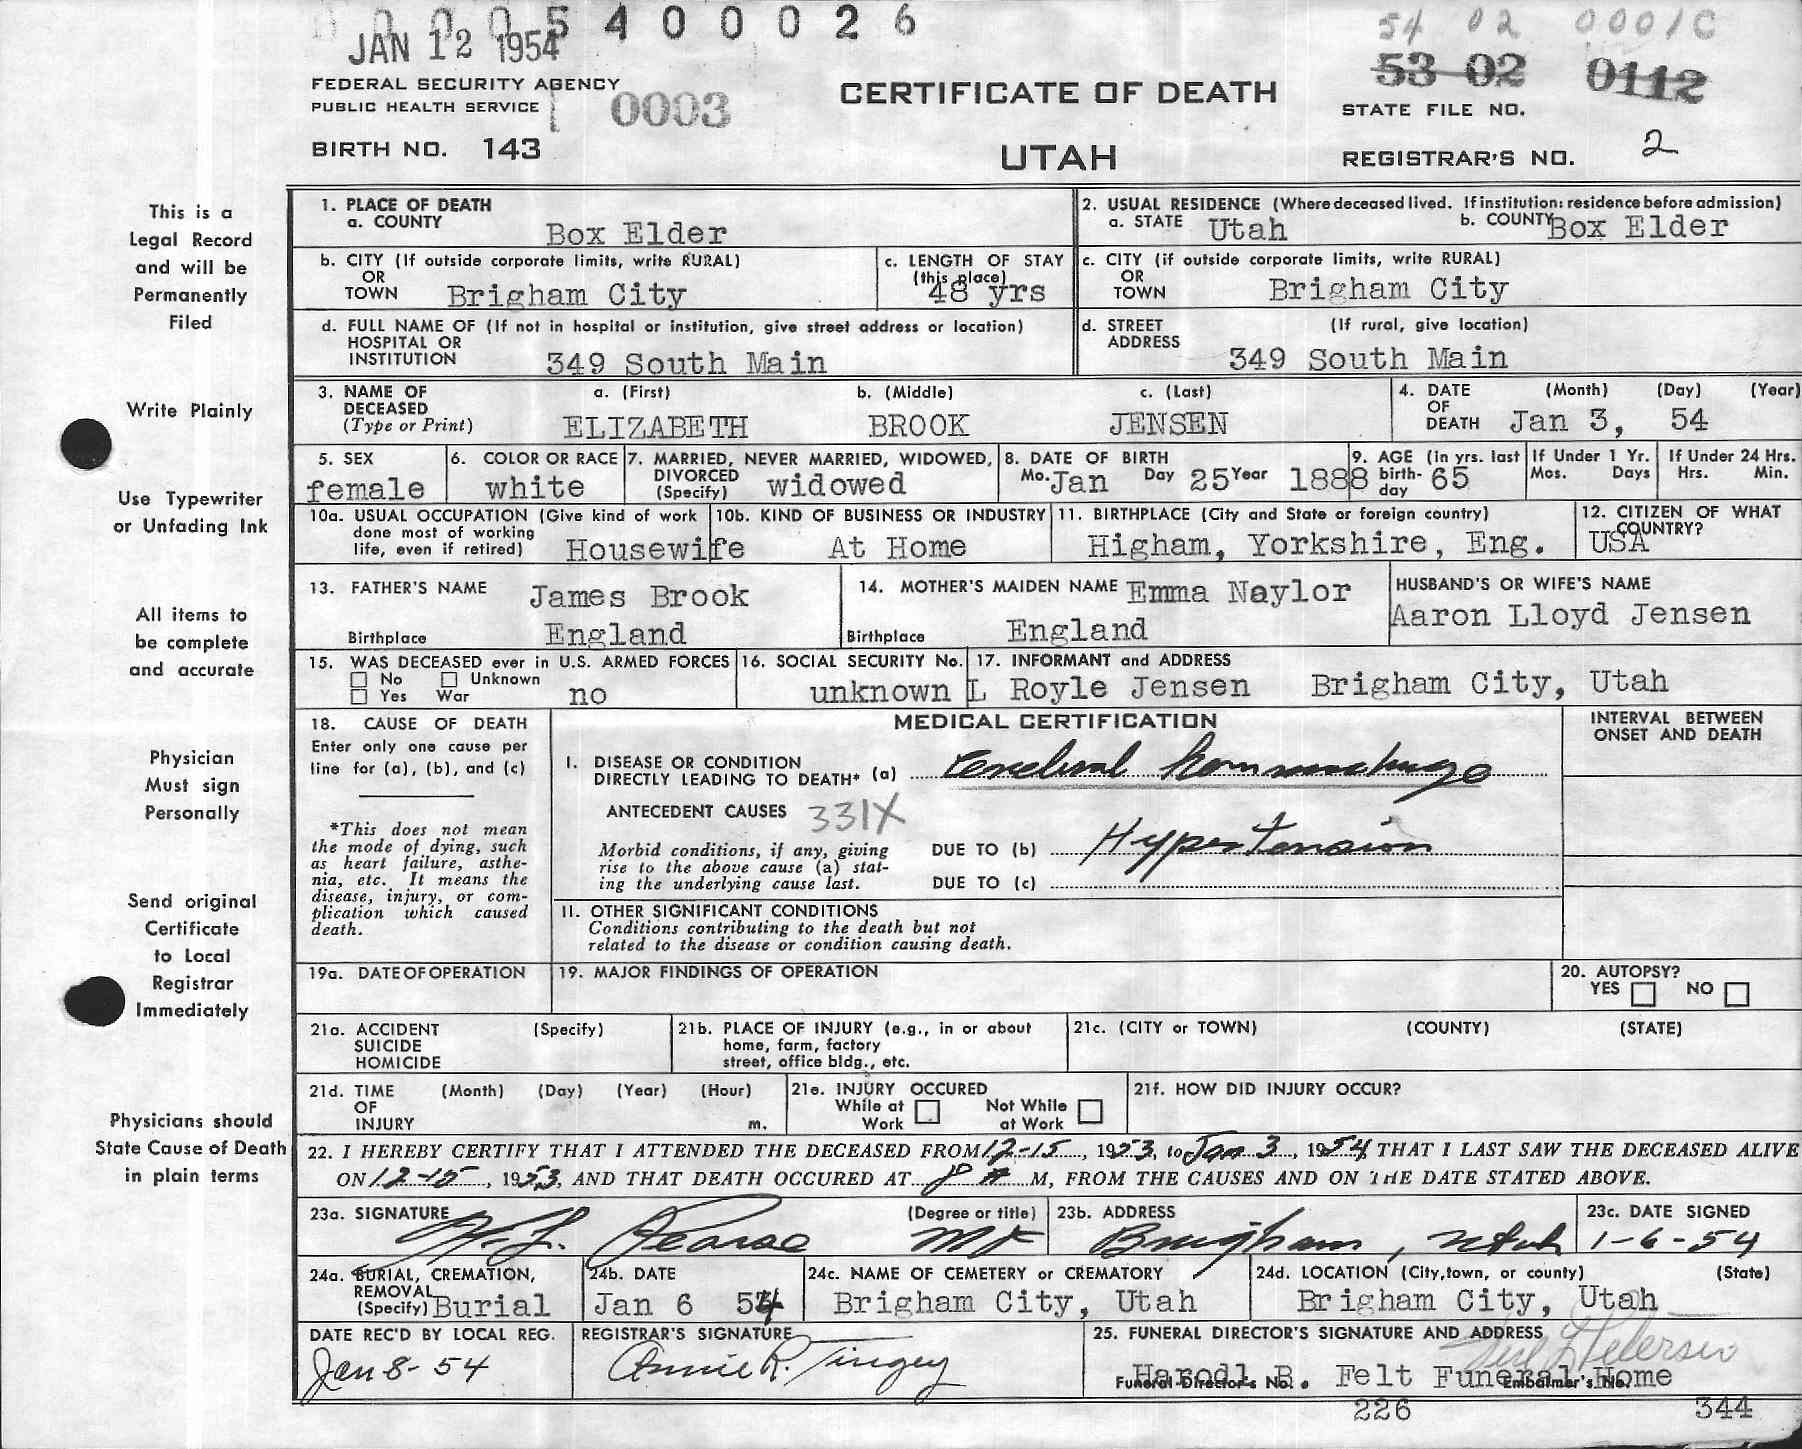 0 0 0 5 4 0 0 0 2 6
JAN 12 1954
54 02 0001C
53 02 0112
FEDERAL SECURITY AGENCY
PUBLIC HEALTH SERVICE
0003
CERTIFICATE OF DEATH
STATE FILE NO.
BIRTH NO. 143
UTAH
REGISTRAR'S NO. 2
This is a
Legal Record
and will be
Permanently
Filed
Write Plainly
Use Typewriter
or Unfading Ink
All items to
be complete
and accurate
Physician
Must sign
Personally
Send original
Certificate
to Local
Registrar
Immediately
Physicians should
State Cause of Death
in plain terms
1. PLACE OF DEATH
a. COUNTY Box Elder
2. USUAL RESIDENCE (Where deceased lived. If institution: residence before admission)
a. STATE Utah b. COUNTY Box Elder
b. CITY (If outside corporate limits, write RURAL)
OR
TOWN Brigham City
c. LENGTH OF STAY
(this place)
48 yrs
c. CITY (if outside corporate limits, write RURAL)
OR
TOWN Brigham City
d. FULL NAME OF (If not in hospital or institution, give street address or location)
HOSPITAL OR
INSTITUTION 349 South Main
d. STREET (If rural, give location)
ADDRESS
349 South Main
3. NAME OF a. (First) b. (Middle) c. (Last)
DECEASED
(Type or Print) ELIZABETH BROOK JENSEN
4. DATE (Month) (Day) (Year)
OF
DEATH Jan 3, 54
5. SEX
female
6. COLOR OR RACE
white
7. MARRIED, NEVER MARRIED, WIDOWED,
DIVORCED
(Specify) widowed
8. DATE OF BIRTH
Mo. Jan Day 25 Year 1888
9. AGE (in yrs. last
birth-
day 65
If Under 1 Yr.
Mos. Days
If Under 24 Hrs.
Hrs. Min.
10a. USUAL OCCUPATION (Give kind of work
done most of working
life, even if retired) Housewife
10b. KIND OF BUSINESS OR INDUSTRY
At Home
11. BIRTHPLACE (City and State or foreign country)
Higham, Yorkshire, Eng.
12. CITIZEN OF WHAT
COUNTRY?
USA
13. FATHER'S NAME James Brook
Birthplace England
14. MOTHER'S MAIDEN NAME Emma Naylor
Birthplace England
HUSBAND'S OR WIFE'S NAME
Aaron Lloyd Jensen
15. WAS DECEASED ever in U.S. ARMED FORCES
No Unknown
Yes War no
16. SOCIAL SECURITY No.
unknown
17. INFORMANT and ADDRESS
L Royle Jensen Brigham City, Utah
18. CAUSE OF DEATH
Enter only one cause per
line for (a), (b), and (c)
*This does not mean
the mode of dying, such
as heart failure, asthe-
nia, etc. It means the
disease, injury, or com-
plication which caused
death.
MEDICAL CERTIFICATION
INTERVAL BETWEEN
ONSET AND DEATH
I. DISEASE OR CONDITION
DIRECTLY LEADING TO DEATH* (a) Cerebral hemmorhage
ANTECEDENT CAUSES 331X
Morbid conditions, if any, giving
rise to the above cause (a) stat-
ing the underlying cause last.
DUE TO (b) Hypertension
DUE TO (c)
II. OTHER SIGNIFICANT CONDITIONS
Conditions contributing to the death but not
related to the disease or condition causing death.
19a. DATE OF OPERATION
19. MAJOR FINDINGS OF OPERATION
20. AUTOPSY?
YES NO
21a. ACCIDENT (Specify)
SUICIDE
HOMICIDE
21b. PLACE OF INJURY (e.g., in or about
home, farm, factory
street, office bldg., etc.
21c. (CITY or TOWN) (COUNTY) (STATE)
21d. TIME (Month) (Day) (Year) (Hour)
OF
INJURY m.
21e. INJURY OCCURED
While at Not While
Work at Work
21f. HOW DID INJURY OCCUR?
22. I HEREBY CERTIFY THAT I ATTENDED THE DECEASED FROM 12-15, 1953, to Jan 3, 1954 THAT I LAST SAW THE DECEASED ALIVE
ON 12-15, 1953, AND THAT DEATH OCCURED AT 8 A M, FROM THE CAUSES AND ON THE DATE STATED ABOVE.
23a. SIGNATURE (Degree or title)
Pearse MD
23b. ADDRESS
Brigham, Utah
23c. DATE SIGNED
1-6-54
24a. BURIAL, CREMATION,
REMOVAL
(Specify) Burial
24b. DATE
Jan 6 54
24c. NAME OF CEMETERY or CREMATORY
Brigham City, Utah
24d. LOCATION (City, town, or county) (State)
Brigham City, Utah
DATE REC'D BY LOCAL REG.
Jan 8-54
REGISTRAR'S SIGNATURE
Annie R. Tingey
25. FUNERAL DIRECTOR'S SIGNATURE AND ADDRESS
Harodl B. Felt Funeral Home
Funeral Director's No. Embalmer's No.
226 344